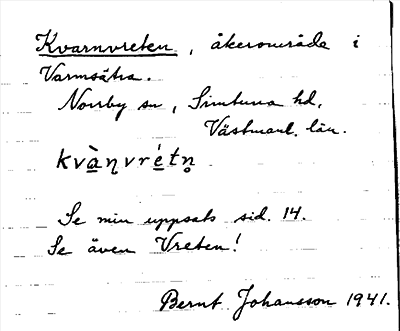 Kvarnvreten, åkerområde i
Varmsätra.
Norrby sn, Simtuna hd,
Västmanl. län.
kvàɳvrétn̥
Se min uppsats sid. 14.
Se även Vreten!
Bernt Johansson 1941.